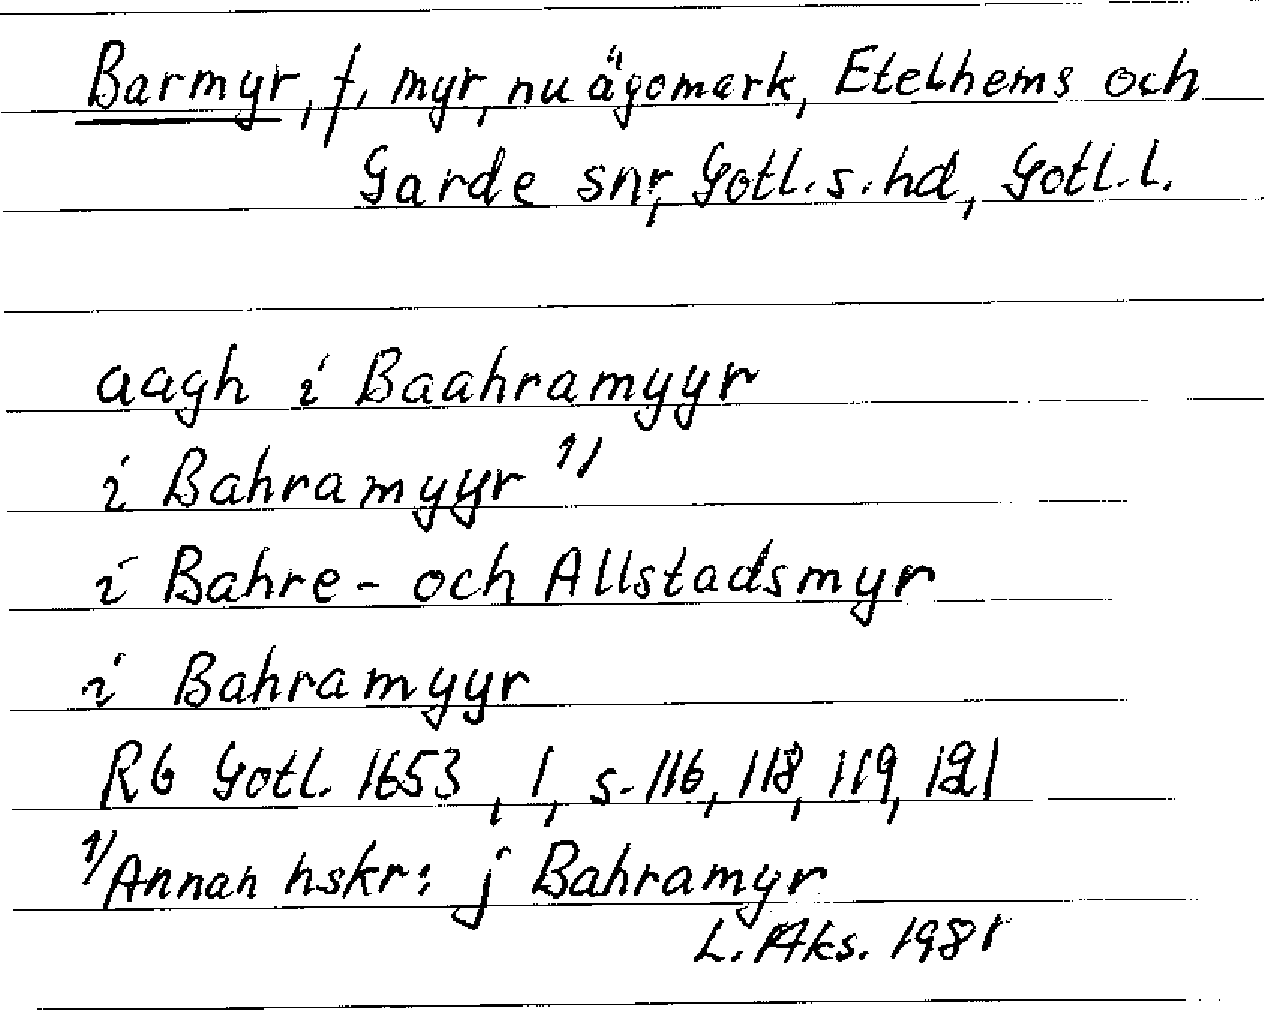 Barmyr, f, myr, nu ägomark, Etelhems och
Garde snr, Gotl. s. hd, Gotl. l.
aagh i Baahramyyr
i Bahramyyr 1)
i Bahre- och Allstadsmyr
i Bahramyyr
Rb Gotl. 1653, 1, s. 116, 118, 119, 121
1) Annan hskr: j Bahramyr
L. Aks. 1981